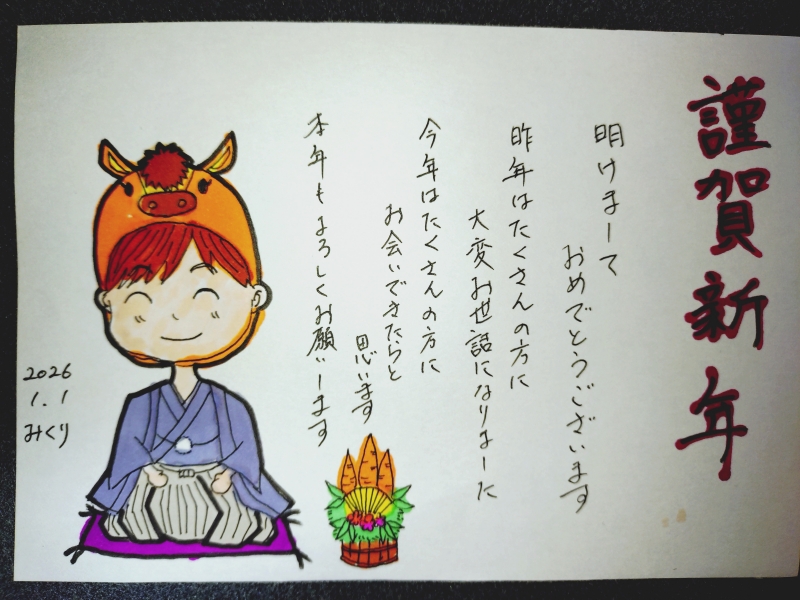 謹賀新年
明けまして
おめでとうございます
昨年はたくさんの方に
大変お世話になりました
今年はたくさんの方に
お会いできたらと
思います
本年もよろしくお願いします
2026
1.1
みくり